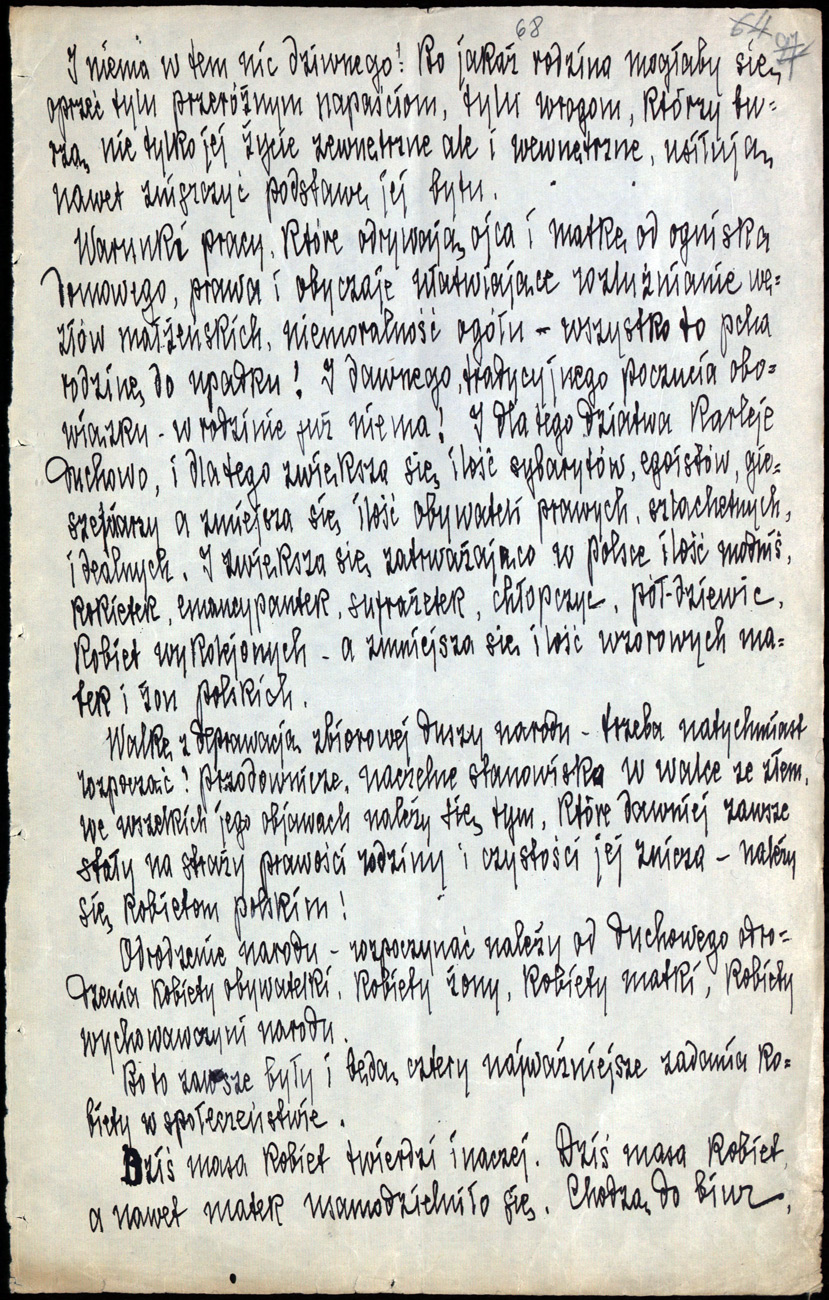 68
64
I niema w tem nic dziwnego! Bo jakaż rodzina mogłaby się
oprzeć tylu przeróżnym napaściom, tylu wrogom, którzy bu-
rzą nie tylko jej życie zewnętrzne ale i wewnętrzne, usiłują
nawet zniszczyć podstawę jej bytu.
Warunki pracy, które odrywają ojca i matkę od ogniska
domowego, prawa i obyczaje ułatwiające rozluźnianie wę-
złów małżeńskich, niemoralność ogółu - wszystko to pcha
rodzinę do upadku! I dawnego, tradycyjnego poczucia obo-
wiązku - w rodzinie już niema! I dlatego dziatwa karleje
duchowo, i dlatego zwiększa się ilość sybarytów, egoistów, gie-
szefciarzy a zmniejsza się ilość obywateli prawych, szlachetnych,
idealnych. I zwiększa się zatrważająco w Polsce ilość modniś,
kokietek, emancypantek, sufrażetek, chłopczyc, pół-dziewic,
kobiet wykolejonych - a zmniejsza się ilość wzorowych ma-
tek i żon polskich.
Walkę z deprawacją zbiorowej duszy narodu - trzeba natychmiast
rozpocząć! Przodownicze, naczelne stanowiska w walce ze złem,
we wszelkich jego objawach należy się tym, które dawniej zawsze
stały na straży prawości rodziny i czystości jej znicza - należy
się kobietom polskim!
Odrodzenie narodu - rozpoczynać należy od duchowego odro-
dzenia kobiety obywatelki, kobiety żony, kobiety matki, kobiety
wychowawczyni narodu.
Bo to zawsze były i będą cztery najważniejsze zadania ko-
biety w społeczeństwie.
Dziś masa kobiet twierdzi inaczej. Dziś masa kobiet,
a nawet matek usamodzielniło się. Chodzą do biur,